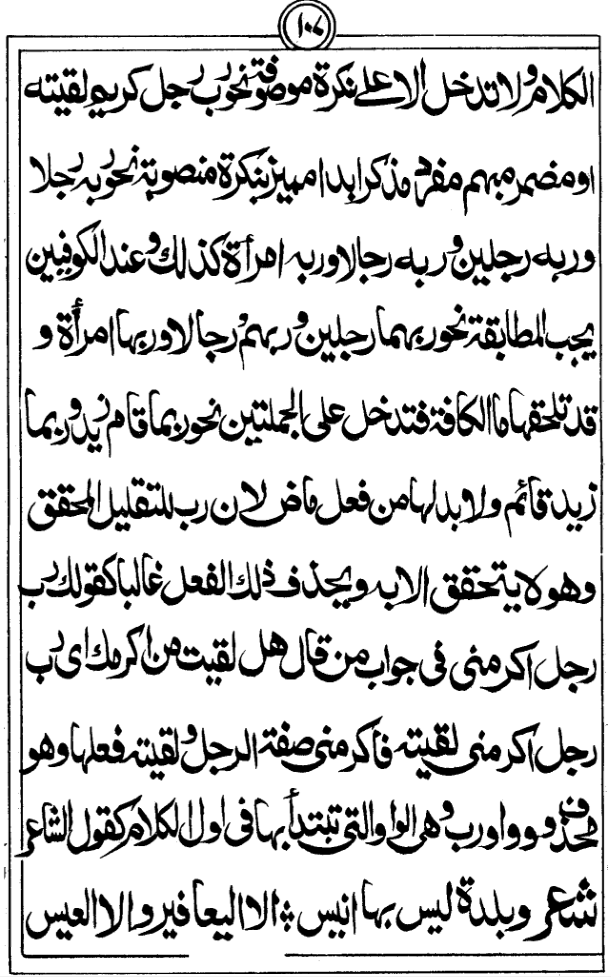 ١٠٧
الكلام ولا تدخل الا على نكرة موصوفة نحو رب رجل كريم لقيته
او مضمر مبهم مفرد مذكر ابدا مميز بنكرة منصوبة نحو ربه رجلا
وربه رجلين وربه رجالا وربه امرأة كذلك وعند الكوفيين
يجب المطابقة نحو ربهما رجلين وربهم رجالا وربها امرأة و
قد تلحقها ما الكافة فتدخل على الجملتين نحو ربما قام زيد وربما
زيد قائم ولا بد لها من فعل ماض لان رب للتقليل المحقق
وهو لا يتحقق الا به ويحذف ذلك الفعل غالبا كقولك رب
رجل اكرمنى فى جواب من قال هل لقيت من اكرمك اى رب
رجل اكرمنى لقيته فاكرمنى صفة الرجل ولقيته فعلها وهو
محذوف وواو رب وهى الواو التى تبتدأ بها فى اول الكلام كقول الشاعر
شاعر وبلدة ليس بها انيس ÷ الا اليعافير والا العيس